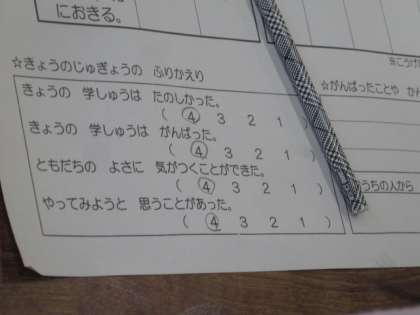 におきる。
☆きょうのじゅぎょうの ふりかえり
きょうの 学しゅうは たのしかった。
( 4 3 2 1 )
きょうの 学しゅうは がんばった。
( 4 3 2 1 )
ともだちの よさに 気がつくことができた。
( 4 3 2 1 )
やってみようと 思うことがあった。
( 4 3 2 1 )
☆がんばったことや かん
おうちの人から